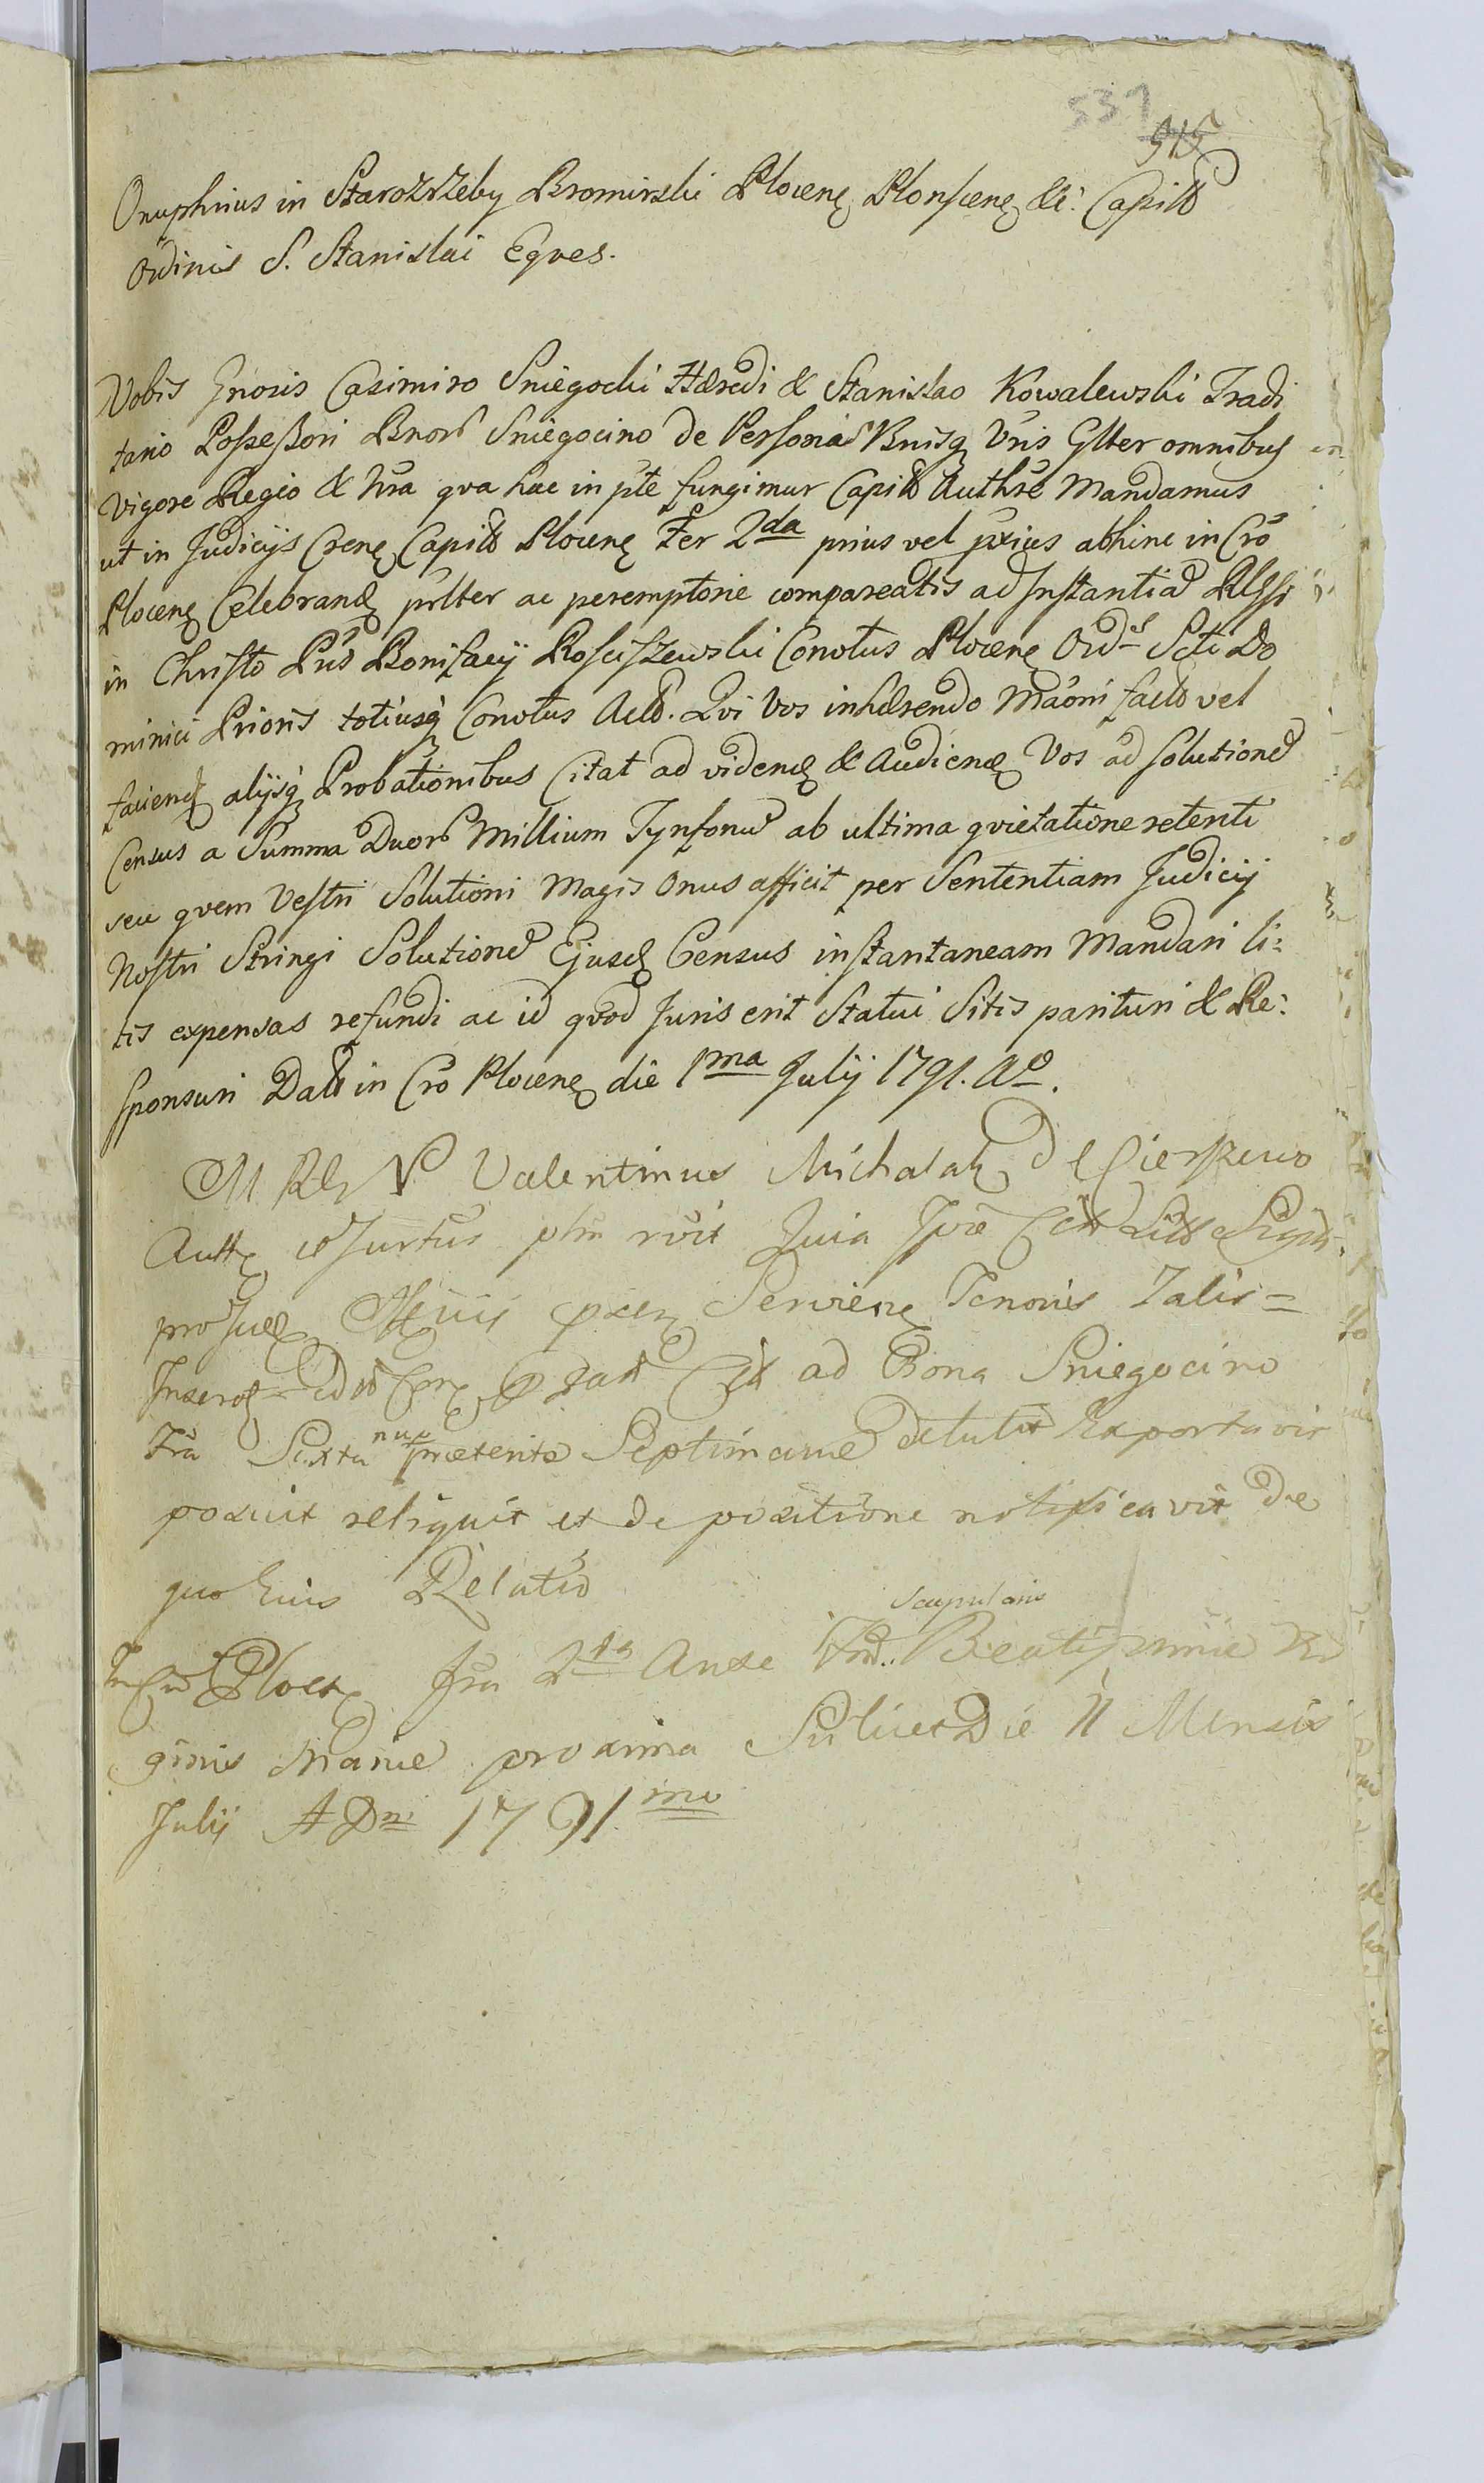 531
515
Onuphrius in Starozrzeby Bromirski Plocen Plonscen &c: Capits
Ordinis S. Stanislai Eques.
Vobis Gnosis Casimiro Sniegocki Hæredi & Stanislao Kowalewski Tradi
tario Possessori Bnor Sniegocino de Personis Bnisq Vris Glter omnibus
vigore Regio & nra qva hac in pte fungimur Capits Authre Mandamus
ut in Judicijs Cren Capits Plocen Fer 2da prius vel pxius abhinc in Cro
Plocen Celebrand prlter ac peremptorie compareatis ad Instantia RRssi
in Christo Pris Bonifacij Rosciszewski Convtus Plocen Ord-s Scti Do
minici Prioris totiusq Convtus Acts. Qvi Vos inhærendo Maoni facts vel
faciend alijsq Probationibus Citat ad vidend & Audiend Vos ad solutione
Census a Summa Duor Millium Tynfonu ab ultima qvietatione retenti
seu qvem Vestri Solutioni Magis Onus afficit per Sententiam Judicij
Nostri Stringi Solutione Ejusd Census instantaneam Mandari li=
tis expensas refundi ac id qvod Juris erit Statui Sitis parituri & Re:
sponsuri Dats in Cro Plocen die 1ma Julij 1791. Ao.
M Valentinus Michalak de Cierszewo
pro Tenoris Talis=
ad Bona Sniegocino
fra Sexta nup præterita Septimanæ detulit Exportavit
posuit reliquit et de positione notificavit de
quo Eius Relatio
Scapularis
fra 2da Ante Beatissimæ Vir
ginis Mariæ proxima Scilicet Die 11 Mensis
Julij A Dni 1791mo